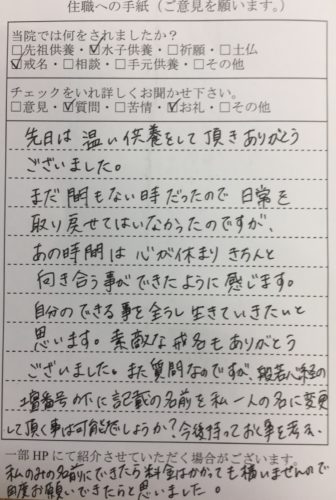 住職への手紙(ご意見を願います。)
当院では何をされましたか?
□先祖供養・☑水子供養・□祈願・□土仏
☑戒名・□相談・□手元供養・□その他
チェックをいれ詳しくお聞かせ下さい。
□意見・☑質問・□苦情・☑お礼・□その他
先日は温い供養をして頂きありがとう
ございました。
まだ間もない時だったので日常を
取り戻せてはいなかったのですが、
あの時間は心が休まりきちんと
向き合う事ができたように感じます。
自分のできる事を全うし生きていきたいと
思います。素敵な戒名もありがとう
ございました。また質問なのですが般若心経の
壇番号の下に記載の名前を私一人の名に変更
して頂く事は可能でしょうか?今後持っておく事を考え、
一部HPにて紹介させていただく場合がございます。
私のみの名前にできたら料金はかかっても構いませんので
再度お願いできたらと思いました。